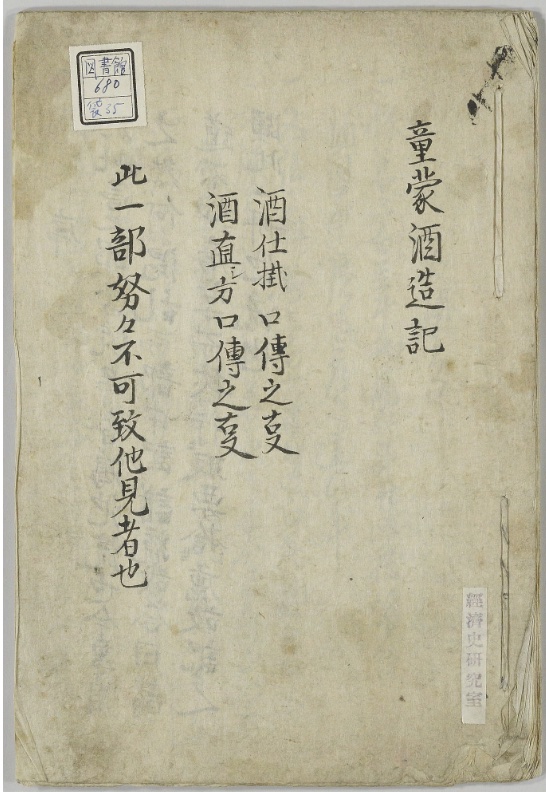 童蒙酒造記
酒仕掛口傳之叓
酒直シ方口傳之叓
此一部努々不可致他見者也
図書館
680
経済史研究室